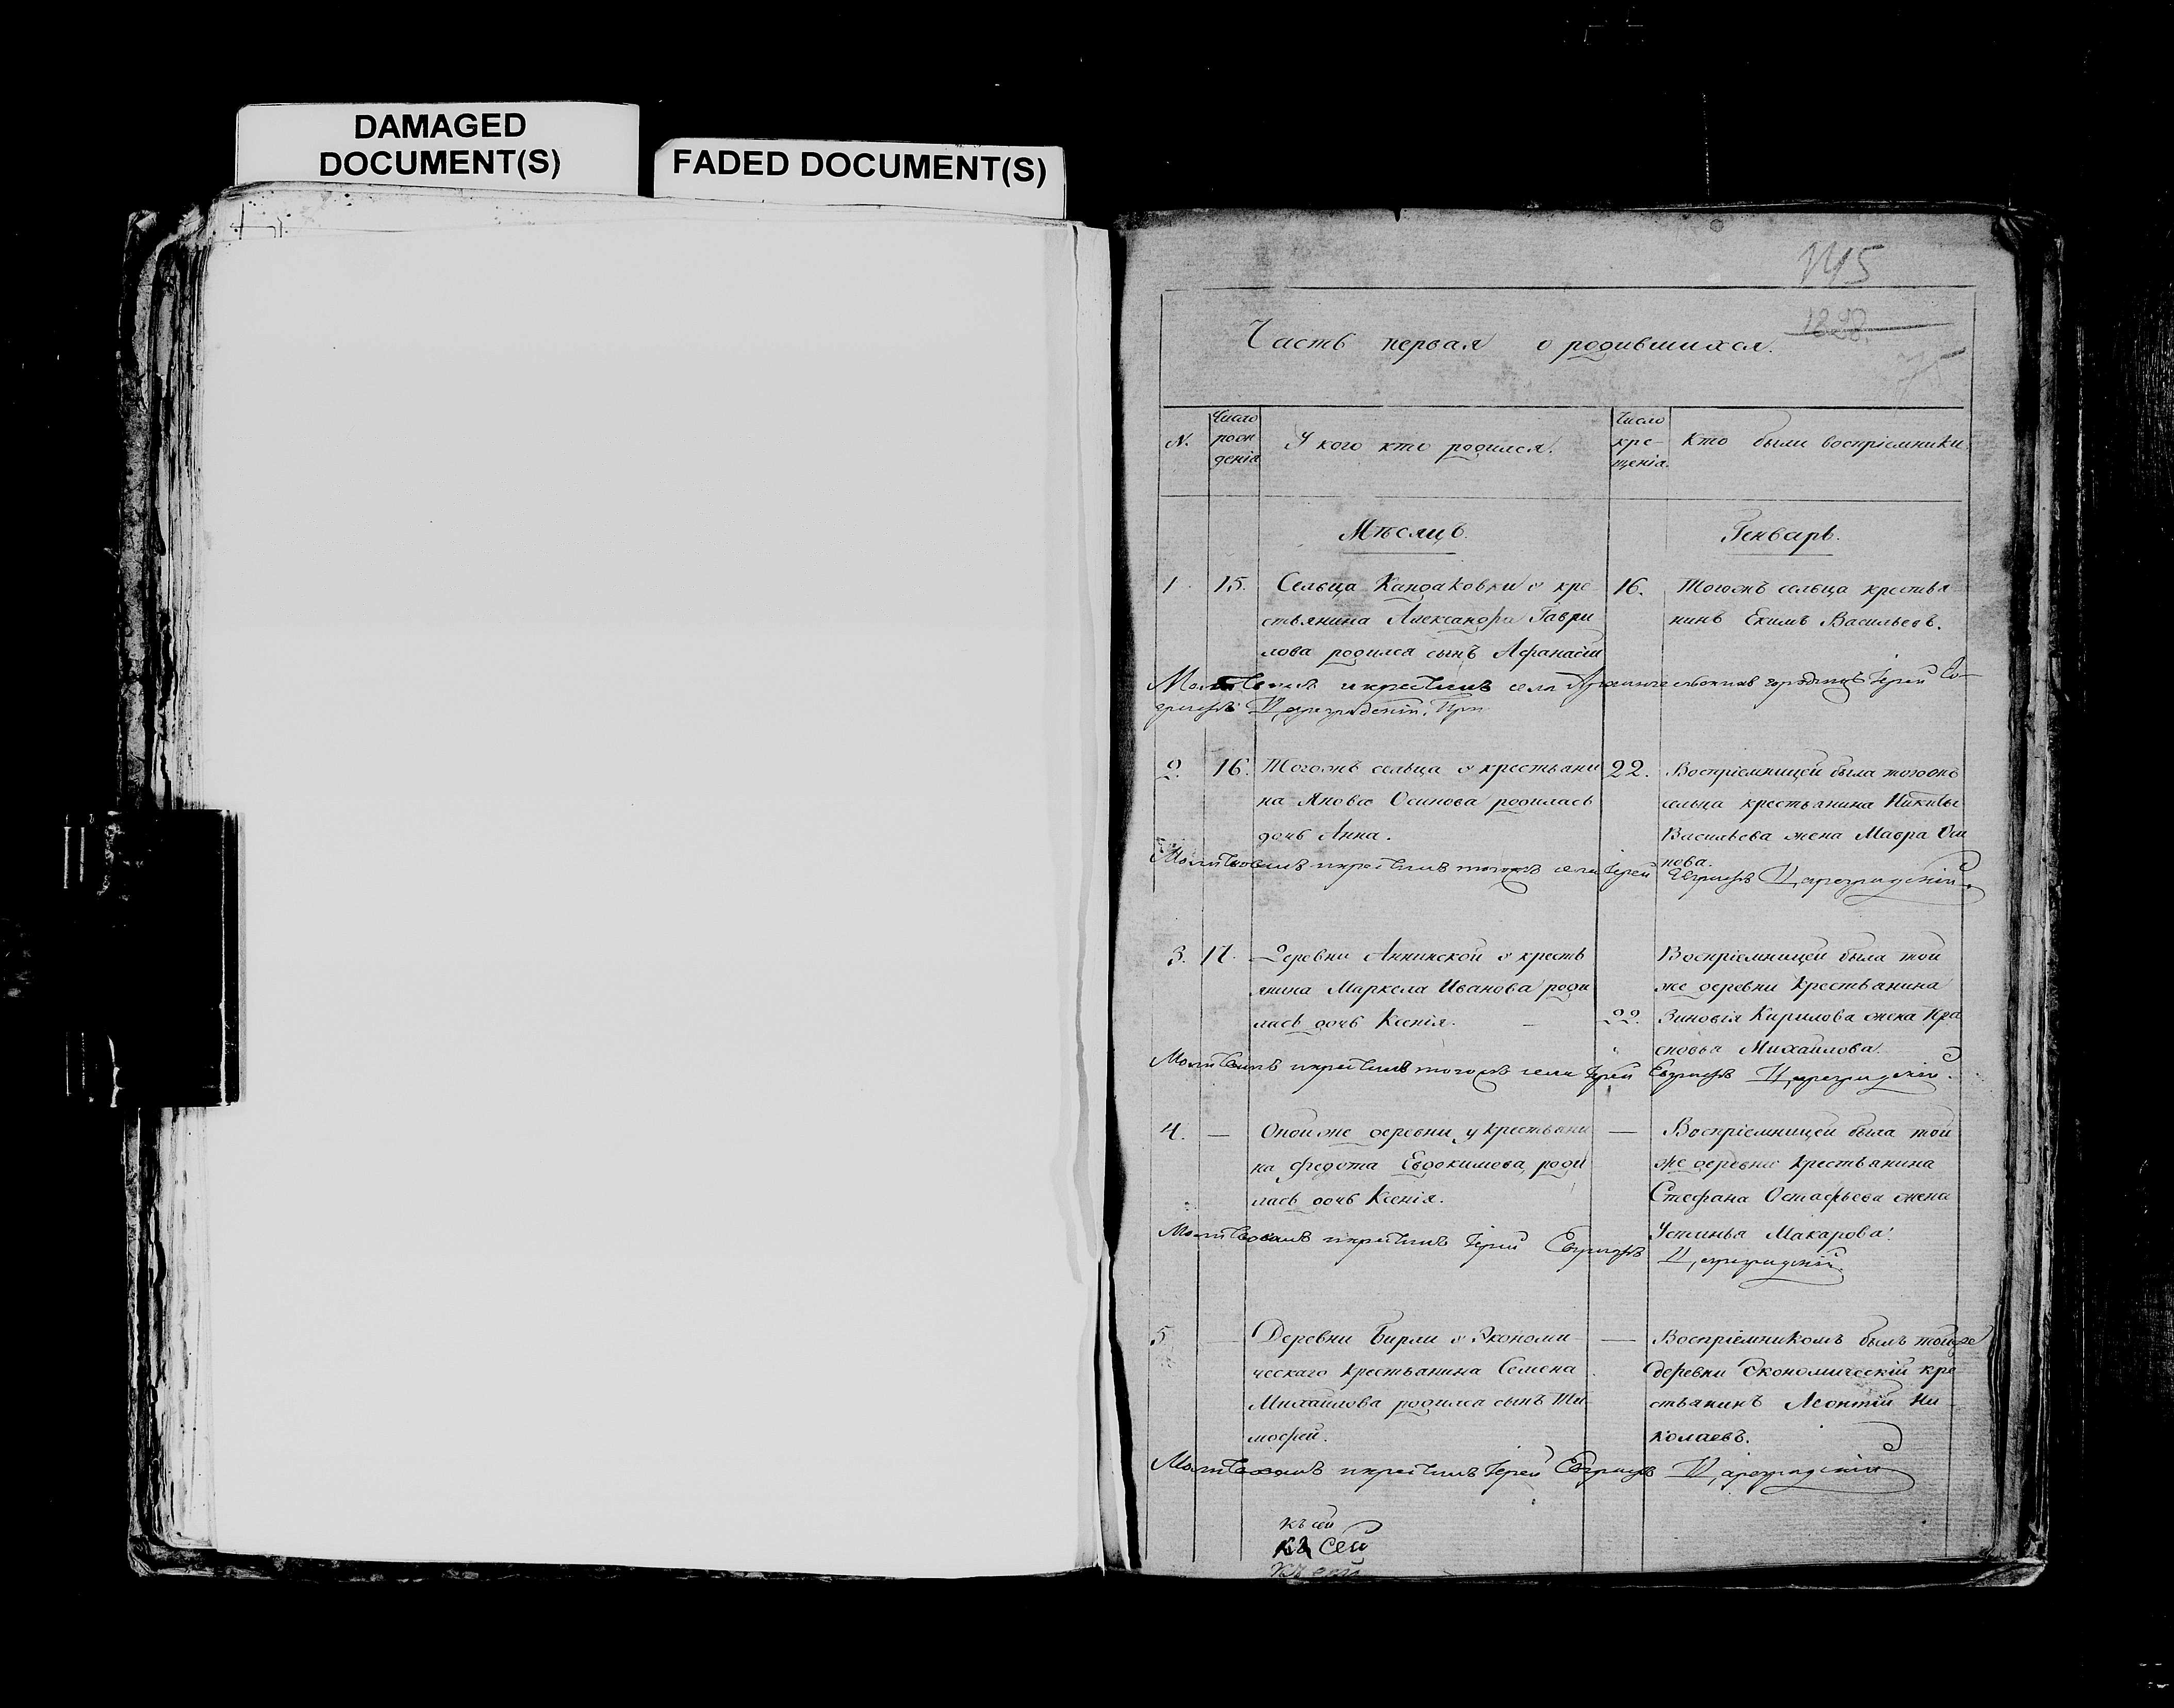 DAMAGED
DOCUMENT(S)
FADED DOCUMENT(S)
145
1828.
75
Часть первая о родившихся.
N.
Число
рож
денія
У кого кто родился.
Число
кре-
щенія.
Кто были воспріемники.
Мѣсяцъ.
Генварь.
1
15.
Сельца Кандаковки у кре
стьянина Александра Гаври
лова родился сынъ Афанасій
16.
Тогожъ сельца крестья
нинъ Екимъ Васильевъ.
и крестилъ села Іерей
2.
16.
Тогожъ сельца у крестьяни
на Якова Осипова родилась
дочь Анна.
22.
Воспріемницей была тогожъ
сельца крестьянина Никиты
Васильева жена Мавра Оси
пова.
Молитвовалъ и крестилъ тогожъ села Іерей
Евграфъ Цареградскій
3.
17.
Деревни Аннинской у кресть
янина Маркела Иванова роди
лась дочь Ксенія.
22.
Воспріемницей была той
же деревни крестьянина
Зиновія Кирилова жена Пра
сковья Михайлова.
Молитвовалъ и крестилъ тогожъ села Іерей Евграфъ Цареградскій.
4.
—
Оной же деревни у крестьяни
на Федота Евдокимова роди
лась дочь Ксенія.
—
Воспріемницей была той
же деревни крестьянина
Стефана Остафьева жена
Устинья Макарова.
Молитвовалъ и крестилъ Іерей Евграфъ
Цареградскій.
5
—
Деревни Бирли у Экономи
ческаго крестьянина Семена
Михайлова родился сынъ Ти
мофей.
—
Воспріемникомъ былъ тойже
деревни Экономическій кре
стьянинъ Леонтій Ни
колаевъ.
Молитвовалъ и крестилъ Іерей Евграфъ Цареградскій
къ сей
къ сей